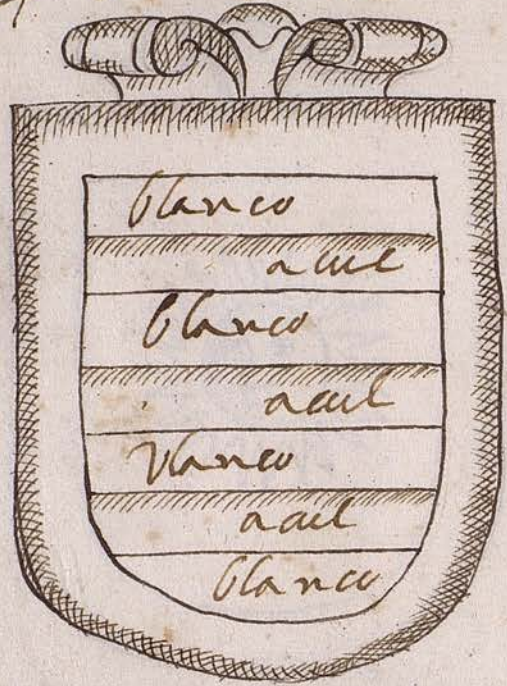 blanco
acul
blanco
acul
vlanco
acul
blanco